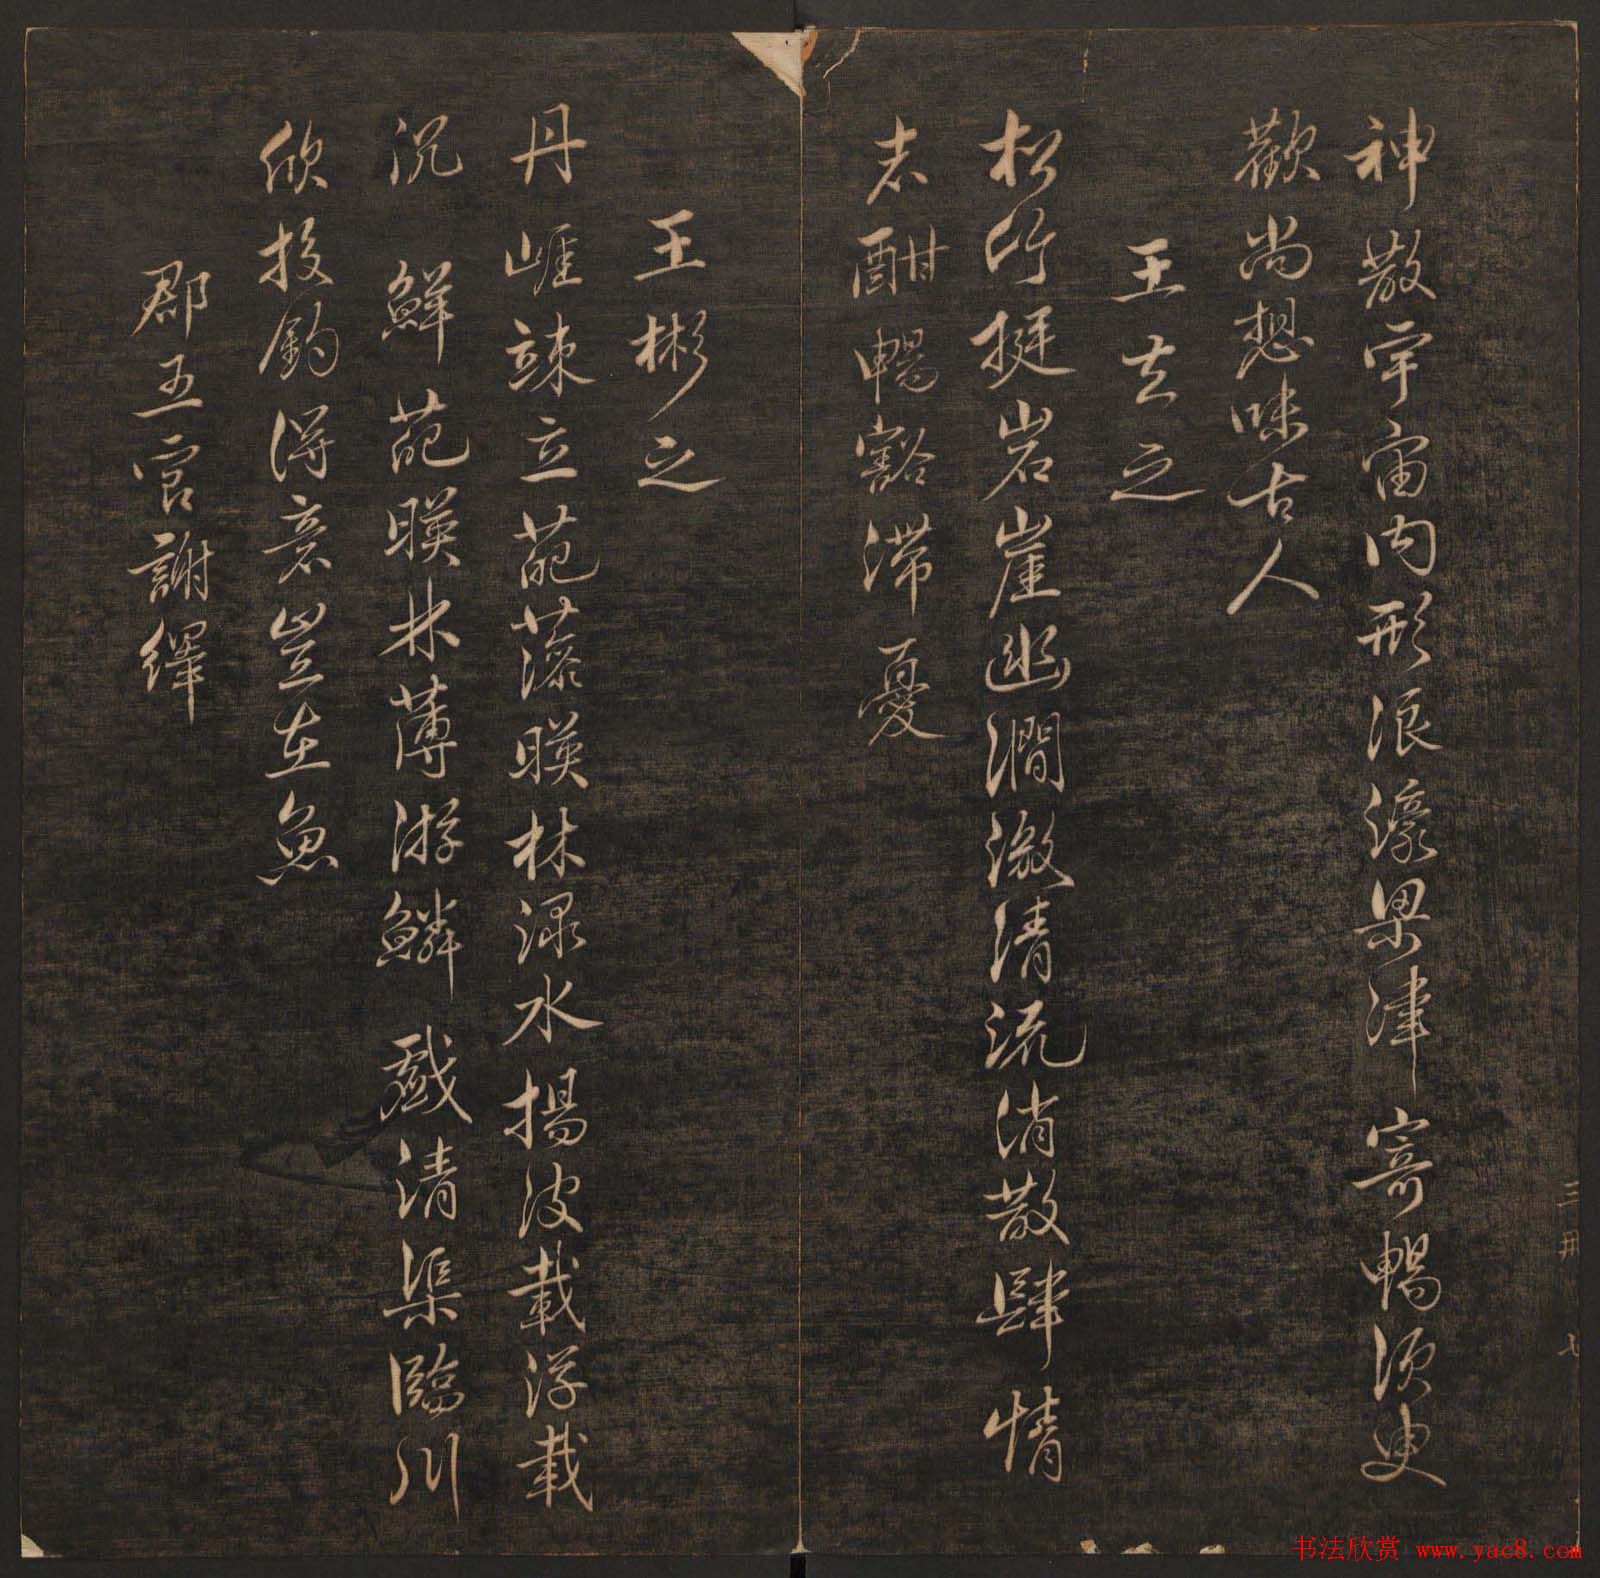 神散宇宙内形浪濠梁津寄暢須臾
歡尚想味古人
王玄之
松竹挺岩崖幽澗激清流消散肆情
志酣暢豁滯憂
王彬之
丹崕竦立葩藻暎林渌水揚波載浮載
沉 鮮葩暎林薄游鱗戲清渠臨川
欣投釣得意豈在魚
郡五官謝繹
三冊 七
书法欣赏 www.yac8.com